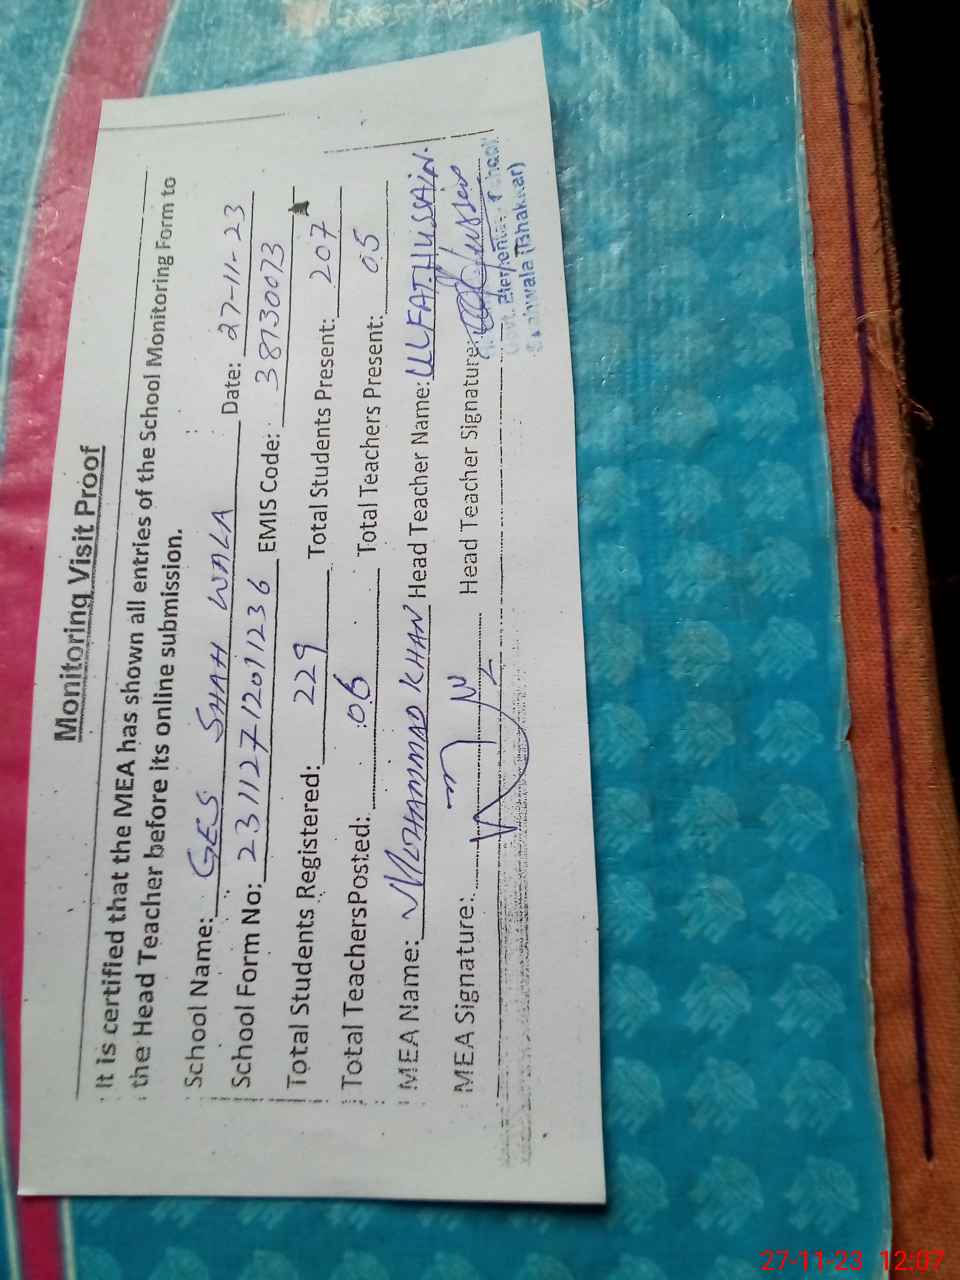 Monitoring Visit Proof
It is certified that the MEA has shown all entries of the School Monitoring Form to
the Head Teacher before its online submission.
School Name: GES SHAH WALA Date: 27-11-23
School Form No: 23112712011236 EMIS Code: 38130073
Total Students Registered: 229 Total Students Present: 207
Total TeachersPosted: 06 Total Teachers Present: 05
MEA Name: MOHAMMAD KHAN Head Teacher Name: ULFAT HUSSAIN.
MEA Signature: Head Teacher Signature:
Govt. Elementary School
Shahwala (Bhakkar)
27-11-23 12:07